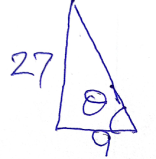 27
θ
9